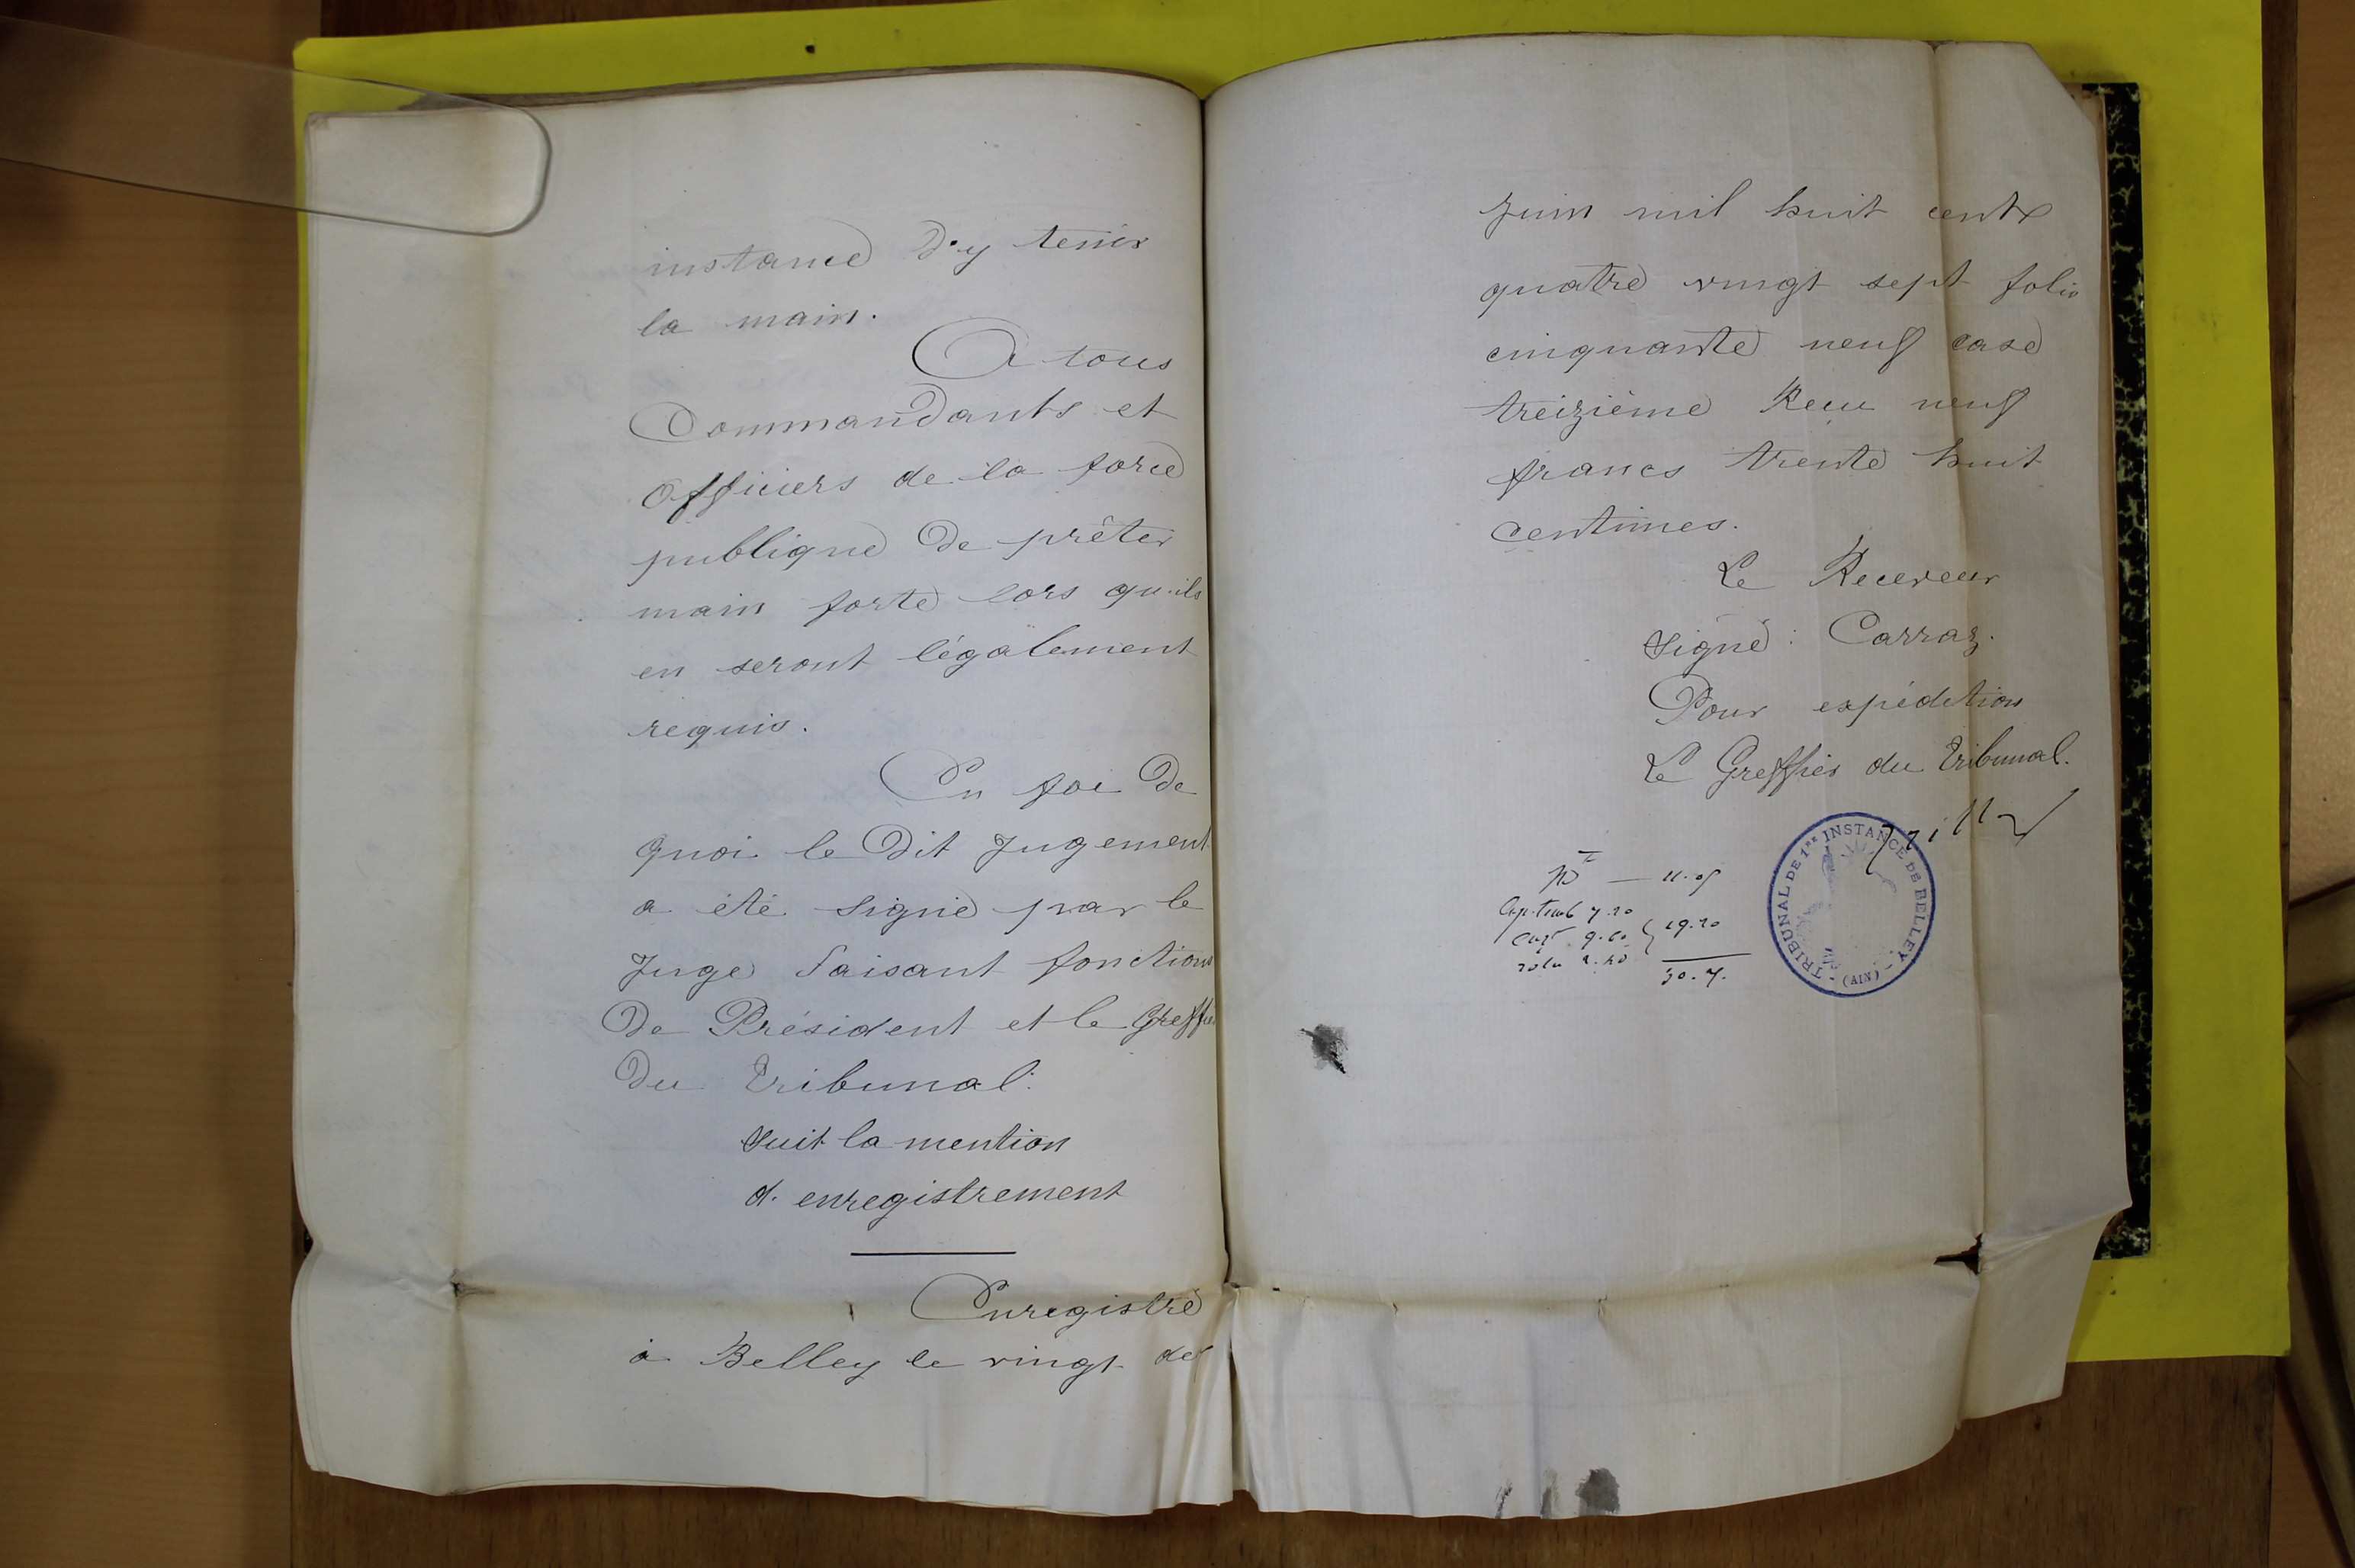 instance d'y tenir
la main.
A tous
Commandants et
Officiers de la force
publique de prêter
main forte lors qu'ils
en seront légalement
requis.
En foi de
quoi le dit Jugement
a été signé par le
Juge faisant fonctions
de Président et le Greffier
du Tribunal.
Suit la mention
d'enregistrement
Enregistré
à Belley le vingt
Juin mil huit cent
quatre vingt sept folio
cinquante neuf case
treizième Reçu neuf
francs trente huit
centimes.
Le Receveur
Signé : Carraz.
Pour expédition
Le Greffier du Tribunal.
TRIBUNAL DE 1RE INSTANCE DE BELLEY - (AIN) -
9.60
19.20